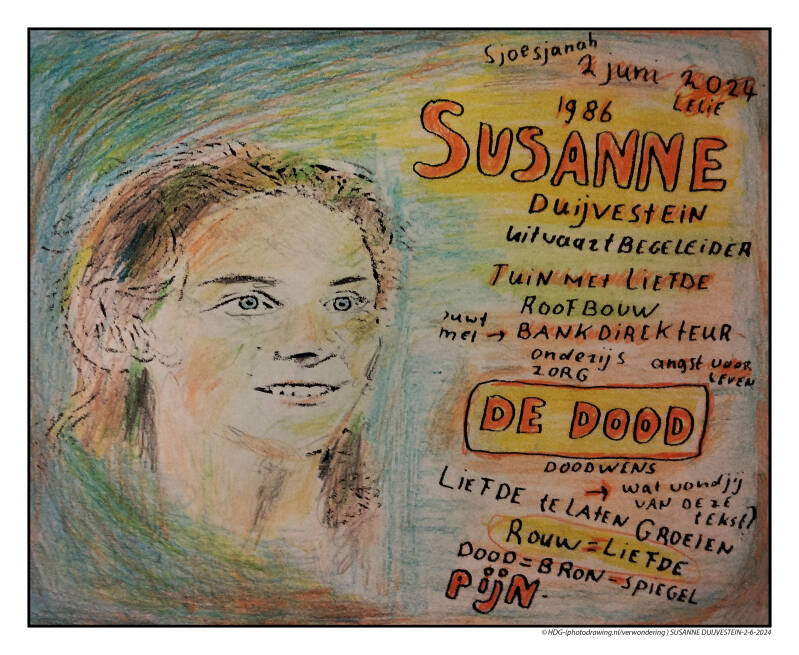 Sjoesjanah
2 juni 2024
LELIE
1986
SUSANNE
DUIJVESTEIN
UitvaartBEGELEIDER
TUIN MET LIEFDE
ROOFBOUW
met → BANKDIREKTEUR
ondezijs
ZORG
angst voor
LEVEN
DE DOOD
DOODWENS
LIEFDE te LATEN GROEIEN
→ wat vond jij
VAN DEZE
tekst?
ROUW = LIEFDE
DOOD = BRON - SPIEGEL
PIJN.
© HDG-(photodrawing.nl/verwondering ) SUSANNE DUIJVESTEIN-2-6-2024